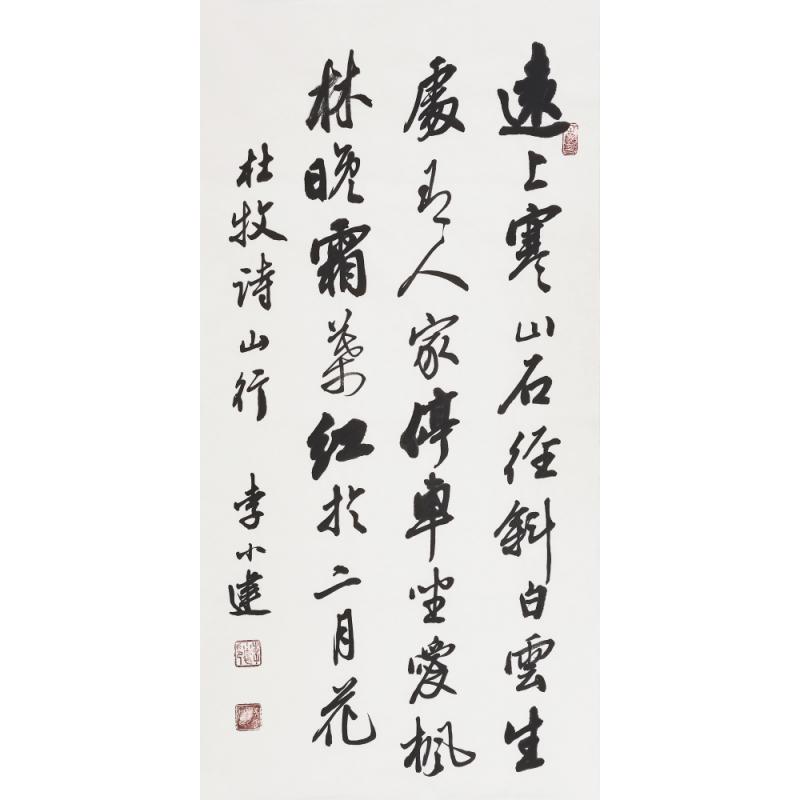 遠上寒山石徑斜白雲生
處有人家停車坐愛楓
林晚霜葉紅於二月花
杜牧詩山行 李小建